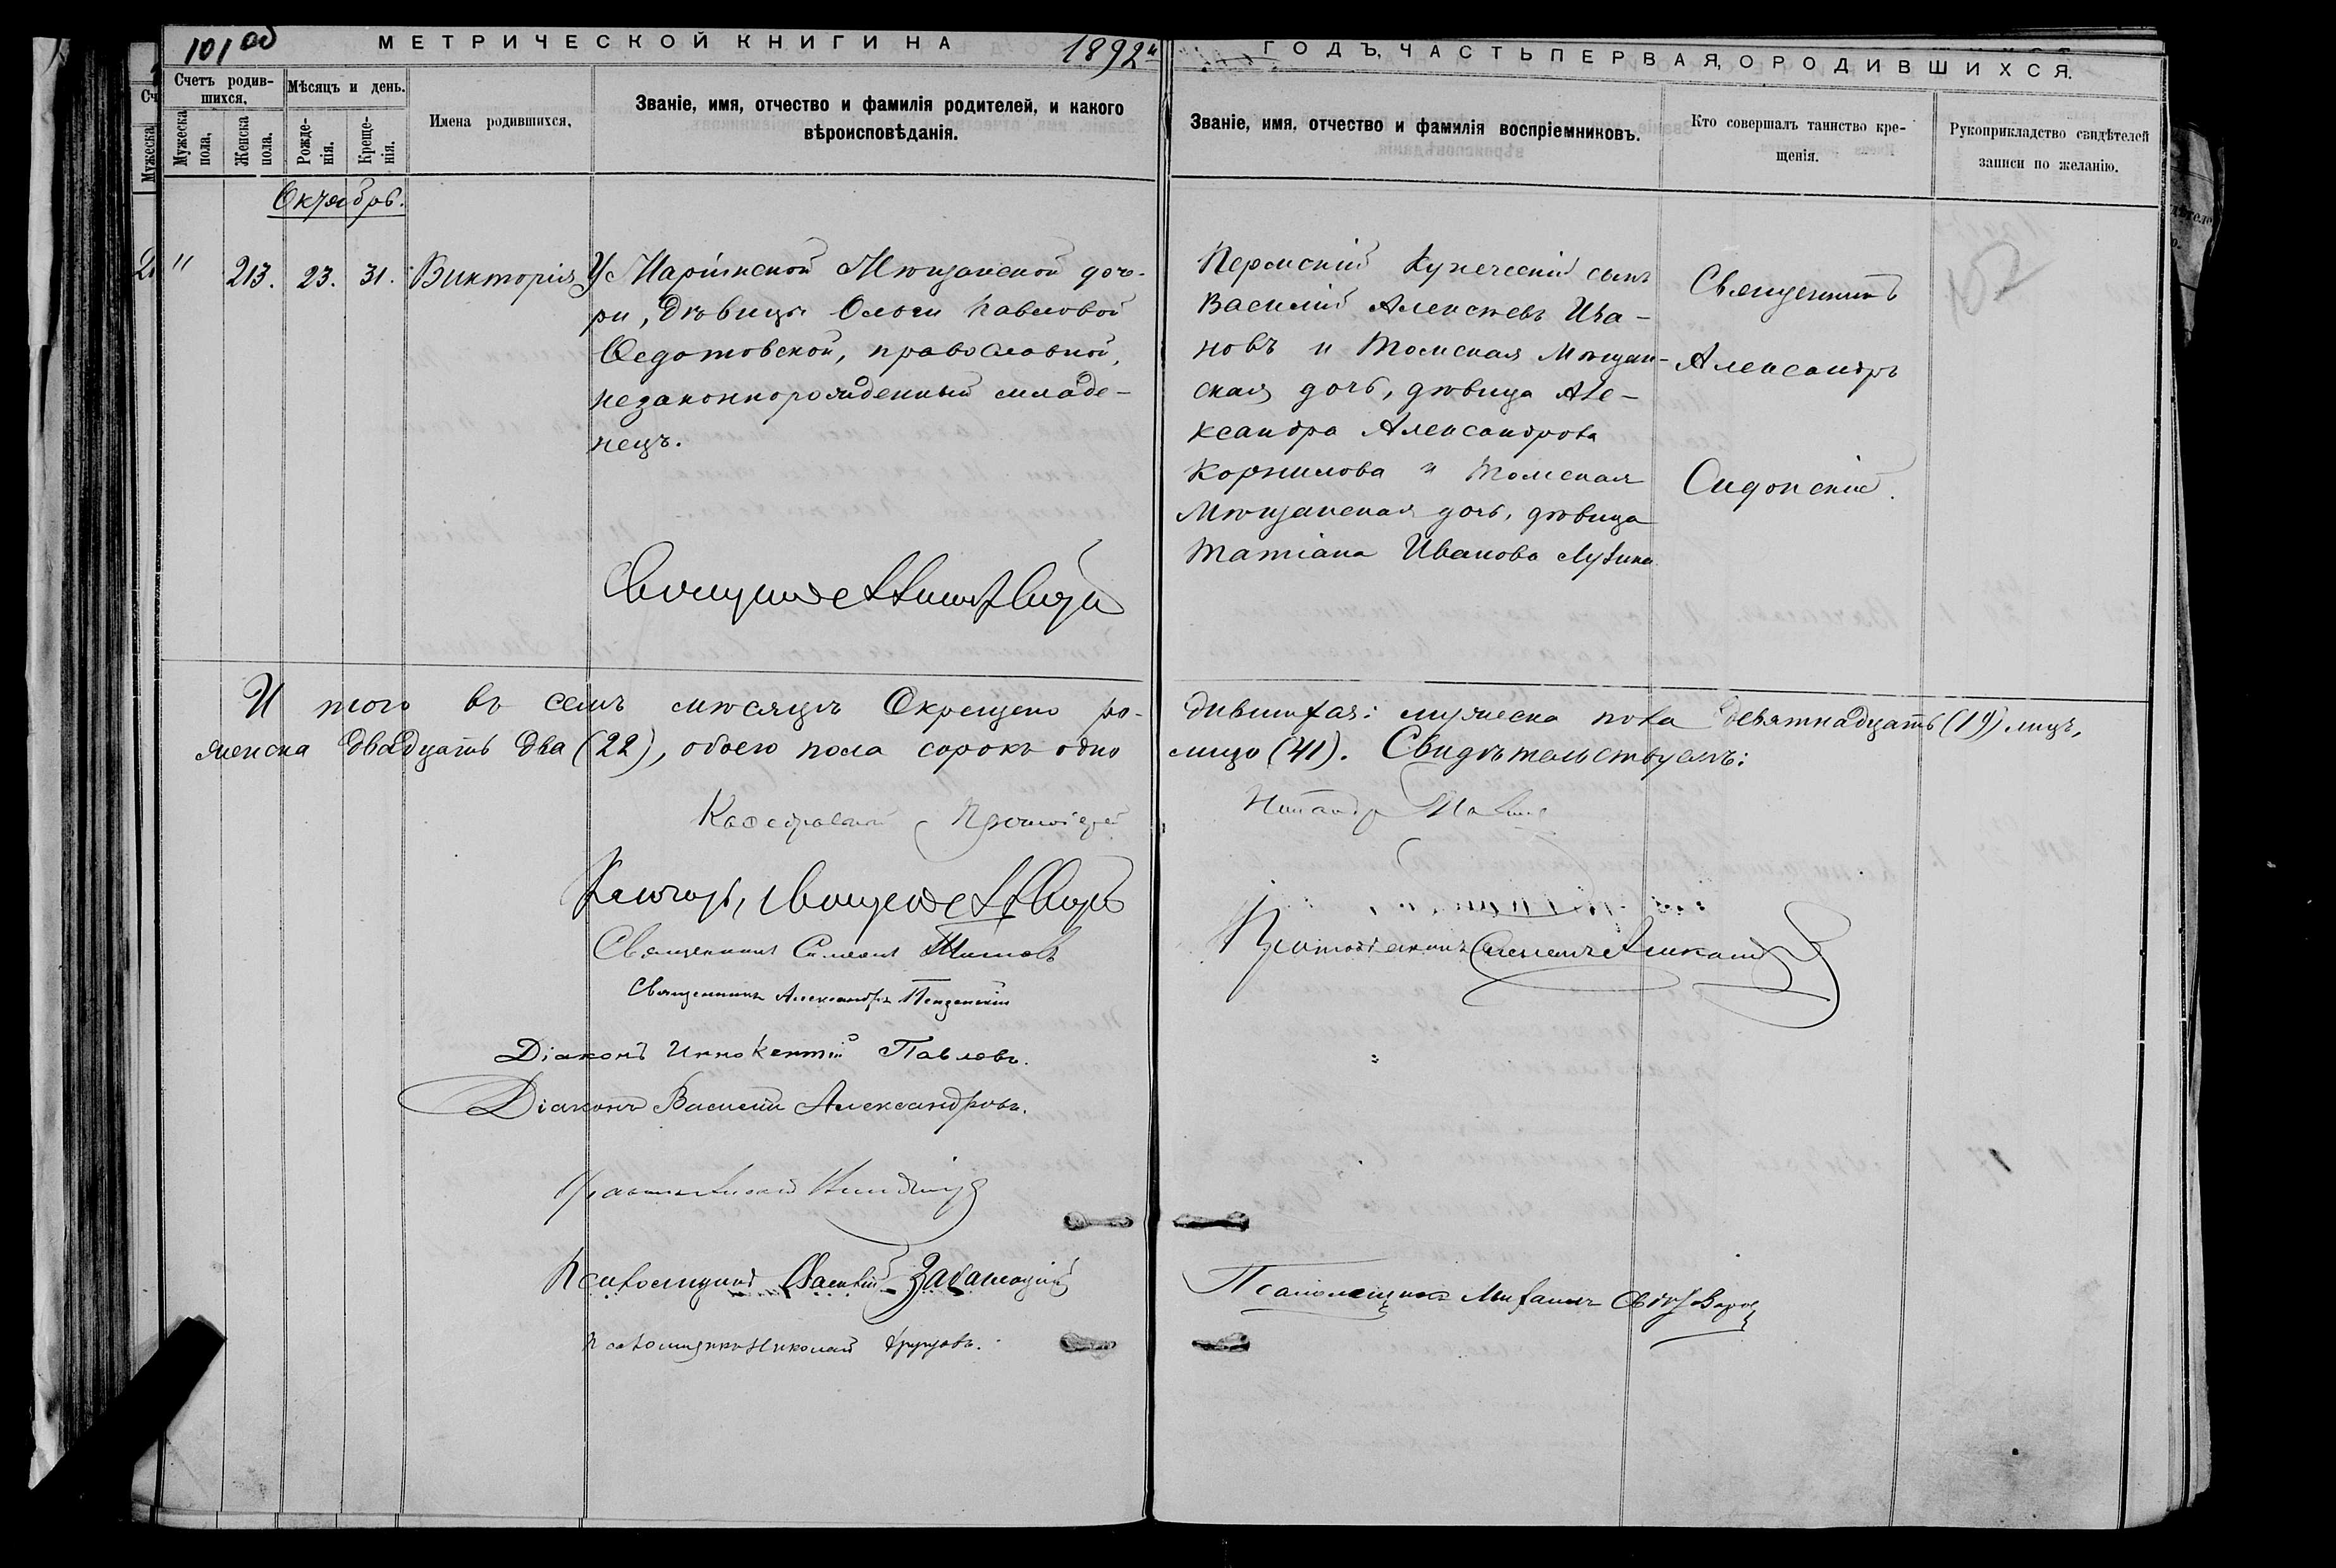 101 об
МЕТРИЧЕСКОЙ КНИГИ НА 1892 й
ГОДЪ, ЧАСТЬ ПЕРВАЯ, О РОДИВШИХСЯ.
Счетъ родив-
шихся.
Мужеска
пола.
Женска
пола.
Мѣсяцъ и день.
Рожде-
нія.
Креще-
нія.
Имена родившихся.
Званіе, имя, отчество и фамилія родителей, и какого
вѣроисповѣданія.
Званіе, имя, отчество и фамилія воспріемниковъ.
Кто совершалъ таинство кре-
щенія.
Рукоприкладство свидѣтелей
записи по желанію.
Октябрь.
" 213. 23. 31. Викторія
У Маріинской Мѣщанской доче-
ри, дѣвицы Ольги Павловой
Ѳедотовской, православной,
незаконнорожденный младе-
нецъ.
Пермскій Купеческій сынъ
Василій Алексѣевъ Ива-
новъ и Томская Мѣщан-
ская дочь, дѣвица Але-
ксандра Александрова
Корнилова и Томская
Мѣщанская дочь, дѣвица
Татіана Иванова
Священникъ
Александръ
Сидонскій.
И того въ семъ мѣсяцѣ Окрещено ро-
дившихся: мужеска пола девятнадцать (19) лицъ,
женска двадцать два (22), обоего пола сорокъ одно
лицо (41). Свидѣтельствуемъ:
Каѳедральный Протоіерей
Ключарь, священ
Священникъ Симеонъ Титовъ
Священникъ Александръ
Діаконъ Иннокентій Павловъ.
Діаконъ Василій Александровъ.
Протодіаконъ
Псаломщикъ Василій
Псаломщикъ Михаилъ
Псаломщикъ Николай